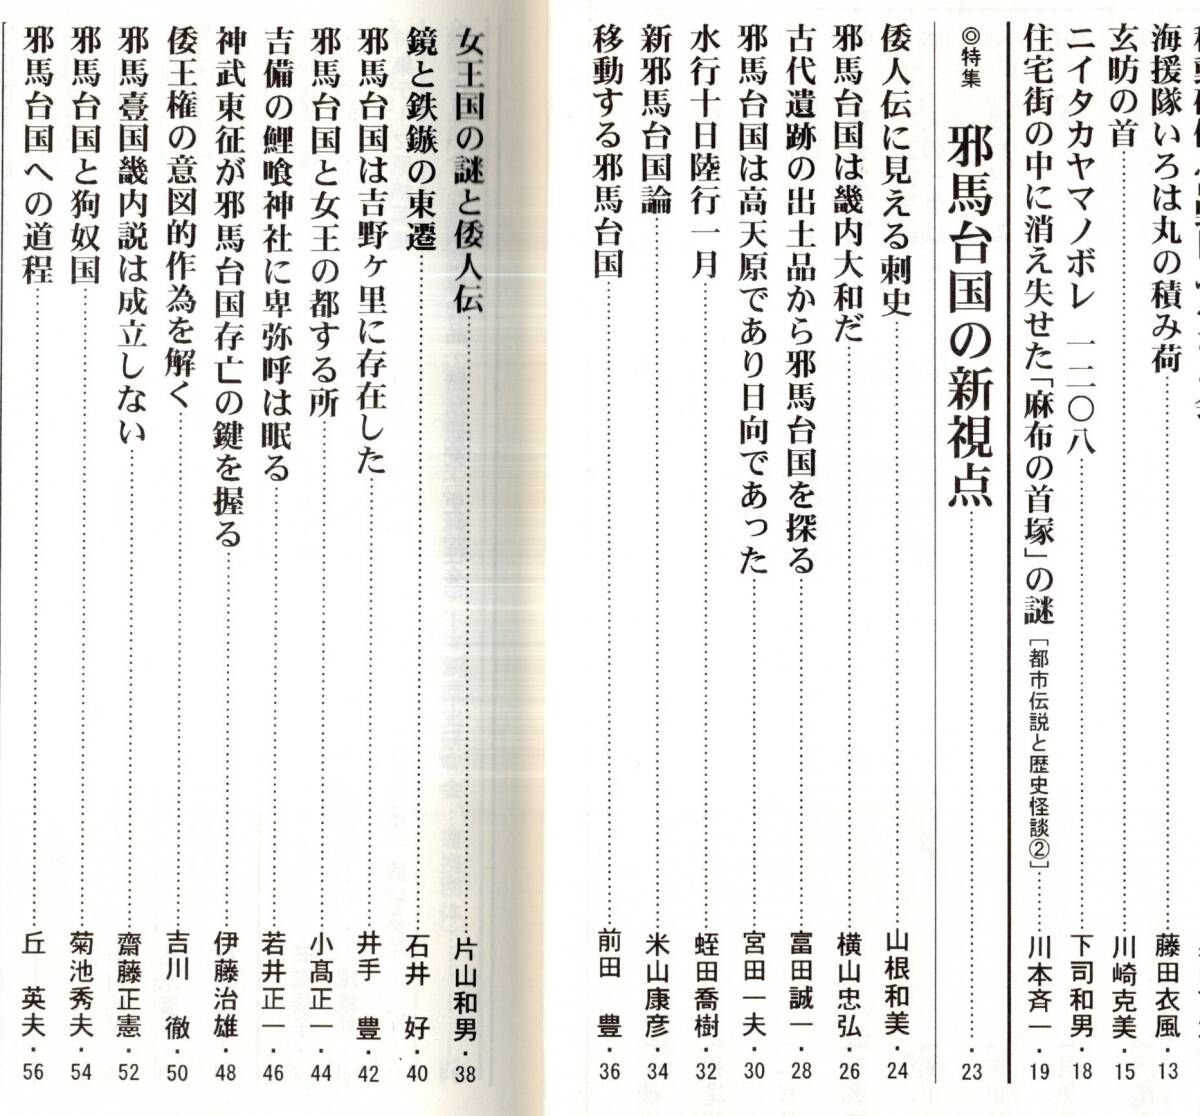 海援隊いろは丸の積み荷……藤田衣風・13
玄昉の首……川崎克美・15
ニイタカヤマノボレ 一二〇八……下司和男・18
住宅街の中に消え失せた「麻布の首塚」の謎［都市伝説と歴史怪談②］……川本斉一・19
◎特集 邪馬台国の新視点……23
倭人伝に見える刺史……山根和美・24
邪馬台国は畿内大和だ……横山忠弘・26
古代遺跡の出土品から邪馬台国を探る……富田誠一・28
邪馬台国は高天原であり日向であった……宮田一夫・30
水行十日陸行一月……蛭田喬樹・32
新邪馬台国論……米山康彦・34
移動する邪馬台国……前田 豊・36
女王国の謎と倭人伝……片山和男・38
鏡と鉄鏃の東遷……石井 好・40
邪馬台国は吉野ヶ里に存在した……井手 豊・42
邪馬台国と女王の都する所……小髙正一・44
吉備の鯉喰神社に卑弥呼は眠る……若井正一・46
神武東征が邪馬台国存亡の鍵を握る……伊藤治雄・48
倭王権の意図的作為を解く……吉川 徹・50
邪馬壹国畿内説は成立しない……齋藤正憲・52
邪馬台国と狗奴国……菊池秀夫・54
邪馬台国への道程……丘 英夫・56